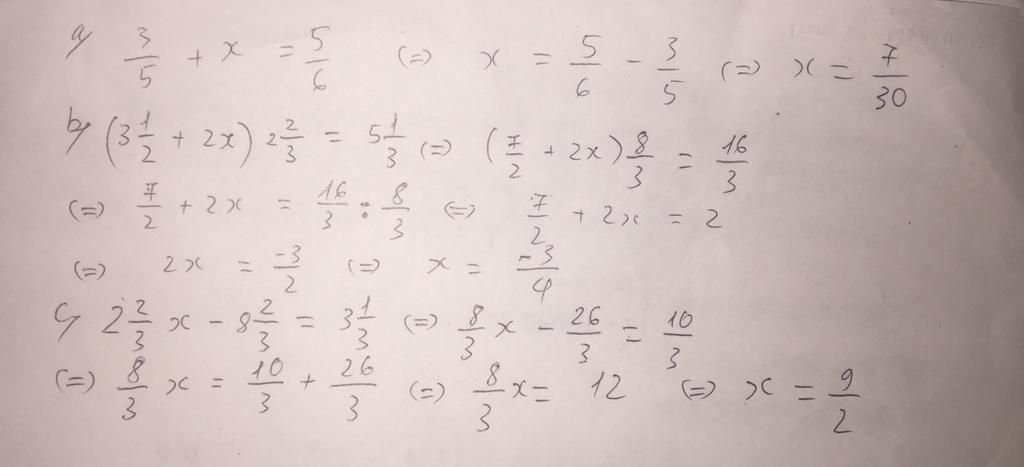 a) 3/5 + x = 5/6 (=) x = 5/6 - 3/5 (=) x = 7/30
b) (3 1/2 + 2x) 2 2/3 = 5 1/3 (=) (7/2 + 2x) 8/3 = 16/3
(=) 7/2 + 2x = 16/3 : 8/3 (=) 7/2 + 2x = 2
(=) 2x = -3/2 (=) x = -3/4
c) 2 2/3 x - 8 2/3 = 3 1/3 (=) 8/3 x - 26/3 = 10/3
(=) 8/3 x = 10/3 + 26/3 (=) 8/3 x = 12 (=) x = 9/2